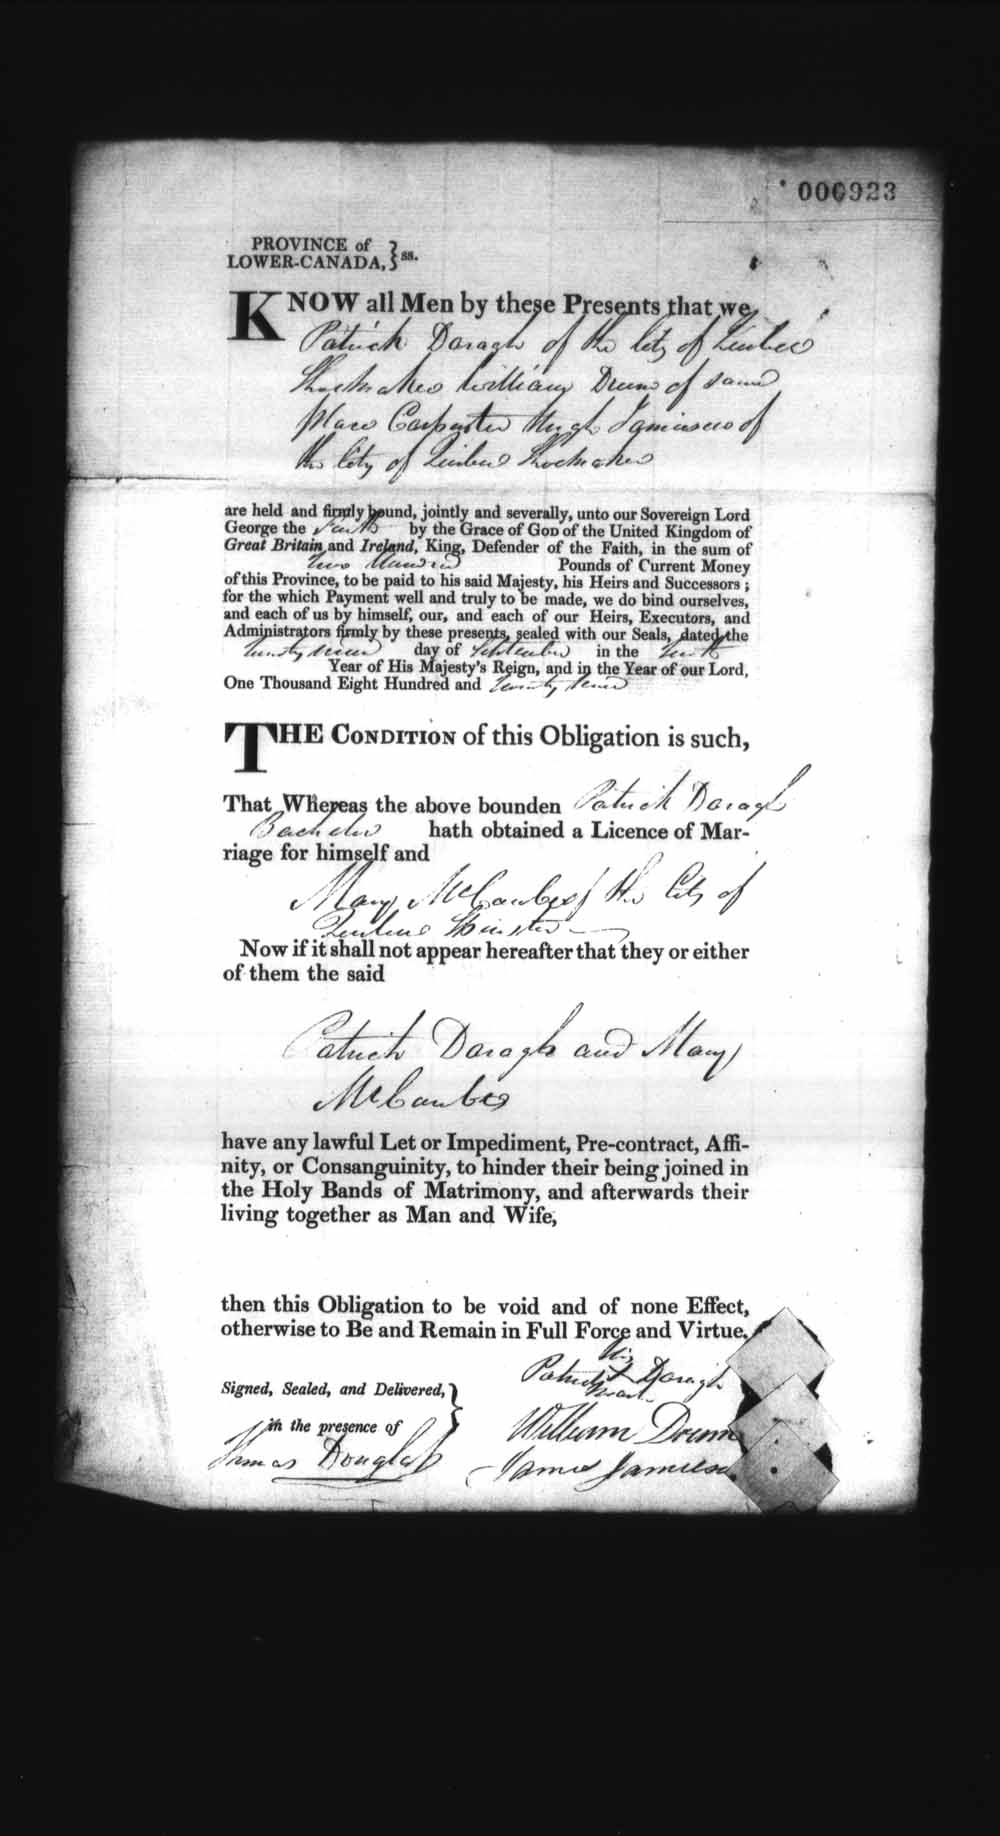 000923
PROVINCE of
LOWER-CANADA, } ss.
KNOW all Men by these Presents that we
Patrick Daragh of the City of Quebec
Shoemaker William Drum of same
place Carpenter Hugh of
the City of Quebec Shoemaker
are held and firmly bound, jointly and severally, unto our Sovereign Lord
George the Fourth by the Grace of GOD of the United Kingdom of
Great Britain and Ireland, King, Defender of the Faith, in the sum of
Two Hundred Pounds of Current Money
of this Province, to be paid to his said Majesty, his Heirs and Successors ;
for the which Payment well and truly to be made, we do bind ourselves,
and each of us by himself, our, and each of our Heirs, Executors, and
Administrators firmly by these presents, sealed with our Seals, dated the
day of September in the
Year of His Majesty's Reign, and in the Year of our Lord,
One Thousand Eight Hundred and Twenty
THE CONDITION of this Obligation is such,
That Whereas the above bounden Patrick Daragh
Bachelor hath obtained a Licence of Mar-
riage for himself and
Mary McCambes of the City of
Quebec Spinster
Now if it shall not appear hereafter that they or either
of them the said
Patrick Daragh and Mary
McCambes
have any lawful Let or Impediment, Pre-contract, Affi-
nity, or Consanguinity, to hinder their being joined in
the Holy Bands of Matrimony, and afterwards their
living together as Man and Wife,
then this Obligation to be void and of none Effect,
otherwise to Be and Remain in Full Force and Virtue.
his
Patrick + Daragh
mark
Signed, Sealed, and Delivered, }
in the presence of
William Drum
James Douglas
James Jamieson